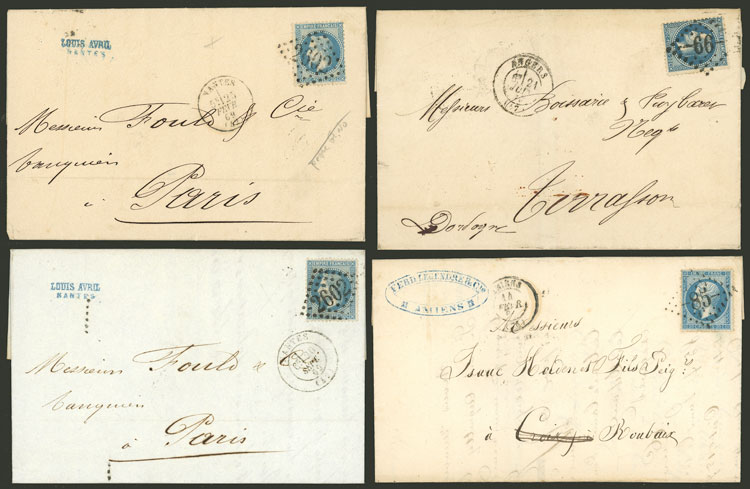 LOUIS AVRIL
NANTES
EMPIRE FRANÇAIS
2602
NANTES
Messieurs Fould & Cie
banquiers
à Paris
ANGERS
21
66
Messieurs Boissarie &
Negts
Terrasson
Dordogne
LOUIS AVRIL
NANTES
EMPIRE FRANÇAIS
2602
NANTES
Messieurs Fould &
banquiers
à Paris
FERD LEGENDRE & Cie
AMIENS
14
85
Messieurs
Isaac Holden & Fils Peigrs
à Croix Roubaix